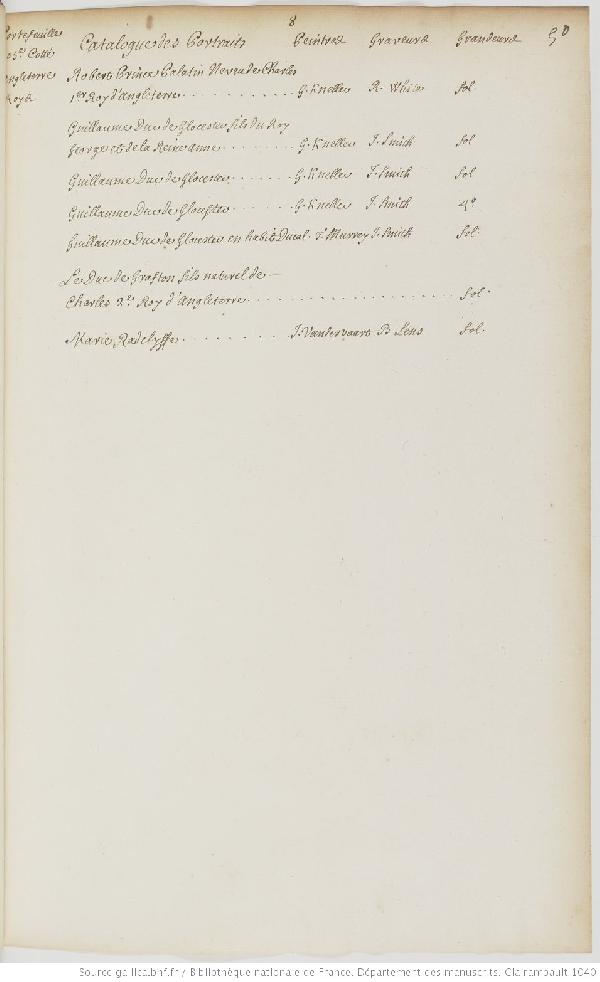 8
Portefeuille Catalogue des Portraits Peintres Graveurs Grandeurs 50
Cotté
Angleterre Robert Prince Palatin Neveu de Charles
Roys 1.er Roy d'Angleterre G. Kneller R. White fol
Guillaume Duc de Glocester fils du Roy
George et de la Reine Anne G. Kneller J. Smith fol
Guillaume Duc de Glocester G. Kneller J. Smith fol
Guillaume Duc de Glocester G. Kneller J. Smith 4.o
Guillaume Duc de Glocester en habit Ducal T. Murrey J. Smith fol.
Le Duc de Grafton fils naturel de
Charles 2.d Roy d'Angleterre fol.
Marie Radclyffe J. Vandervaart B Lens fol.
Source gallica.bnf.fr / Bibliothèque nationale de France. Département des manuscrits. Clairambault 1040